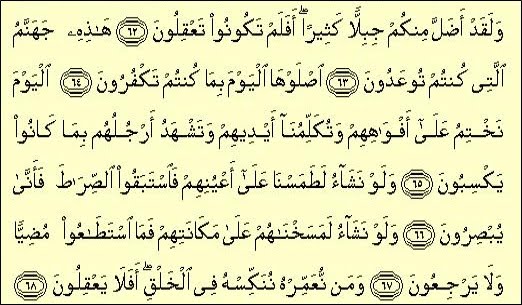 وَلَقَدْ أَضَلَّ مِنكُمْ جِبِلًّا كَثِيرًا ۖ أَفَلَمْ تَكُونُوا۟ تَعْقِلُونَ ٦٢ هَـٰذِهِۦ جَهَنَّمُ
ٱلَّتِى كُنتُمْ تُوعَدُونَ ٦٣ ٱصْلَوْهَا ٱلْيَوْمَ بِمَا كُنتُمْ تَكْفُرُونَ ٦٤ ٱلْيَوْمَ
نَخْتِمُ عَلَىٰٓ أَفْوَٰهِهِمْ وَتُكَلِّمُنَآ أَيْدِيهِمْ وَتَشْهَدُ أَرْجُلُهُم بِمَا كَانُوا۟
يَكْسِبُونَ ٦٥ وَلَوْ نَشَآءُ لَطَمَسْنَا عَلَىٰٓ أَعْيُنِهِمْ فَٱسْتَبَقُوا۟ ٱلصِّرَٰطَ فَأَنَّىٰ
يُبْصِرُونَ ٦٦ وَلَوْ نَشَآءُ لَمَسَخْنَـٰهُمْ عَلَىٰ مَكَانَتِهِمْ فَمَا ٱسْتَطَـٰعُوا۟ مُضِيًّا
وَلَا يَرْجِعُونَ ٦٧ وَمَن نُّعَمِّرْهُ نُنَكِّسْهُ فِى ٱلْخَلْقِ ۖ أَفَلَا يَعْقِلُونَ ٦٨